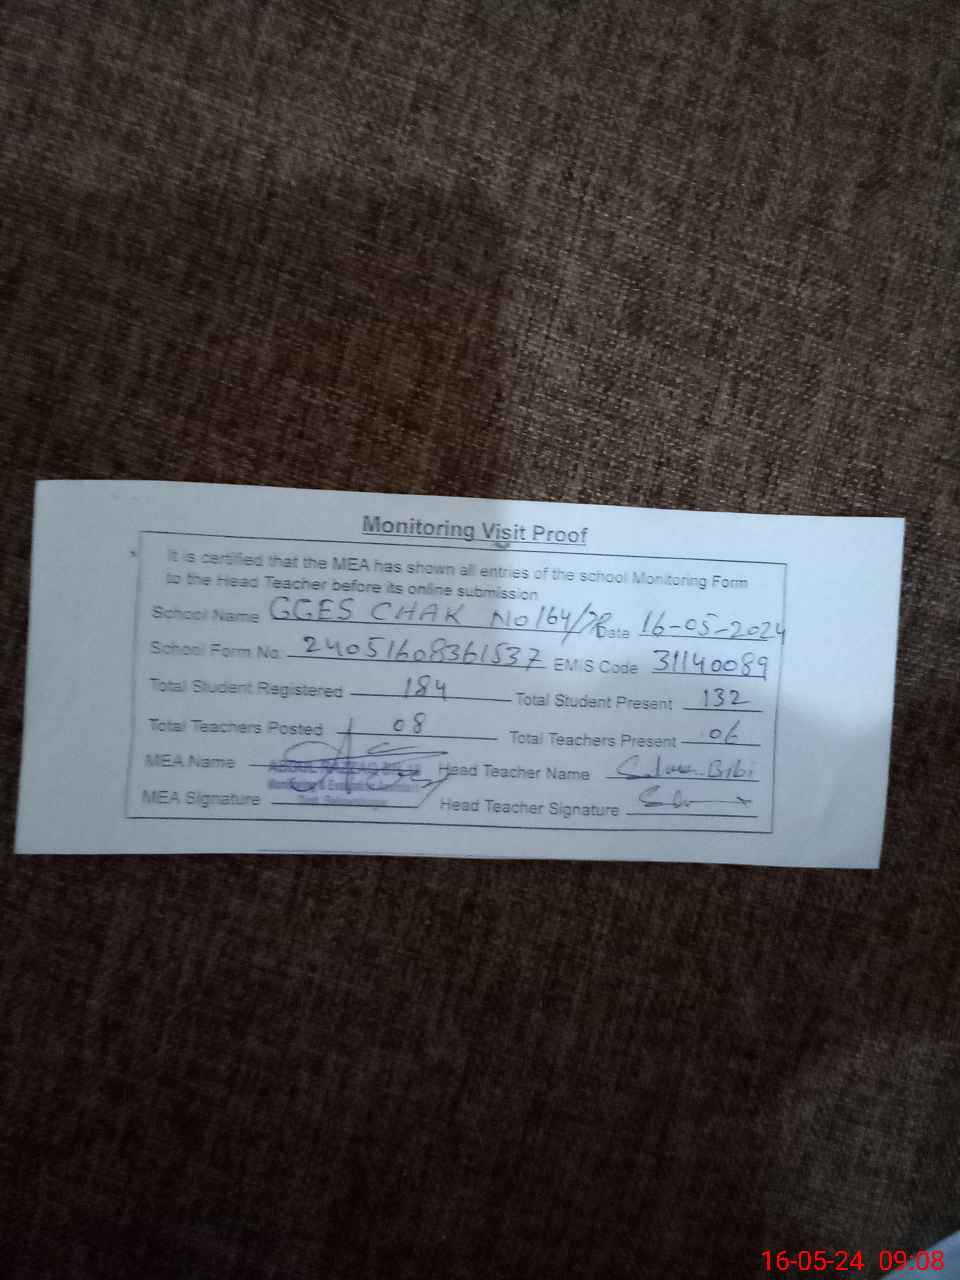 Monitoring Visit Proof
It is certified that the MEA has shown all entries of the school Monitoring Form
to the Head Teacher before its online submission
School Name GGES CHAK No 164/7R Date 16-05-2024
School Form No. 24051608361537 EMIS Code 31140089
Total Student Registered 184 Total Student Present 132
Total Teachers Posted 08 Total Teachers Present 06
MEA Name Head Teacher Name Salma Bibi
MEA Signature Head Teacher Signature
16-05-24 09:08